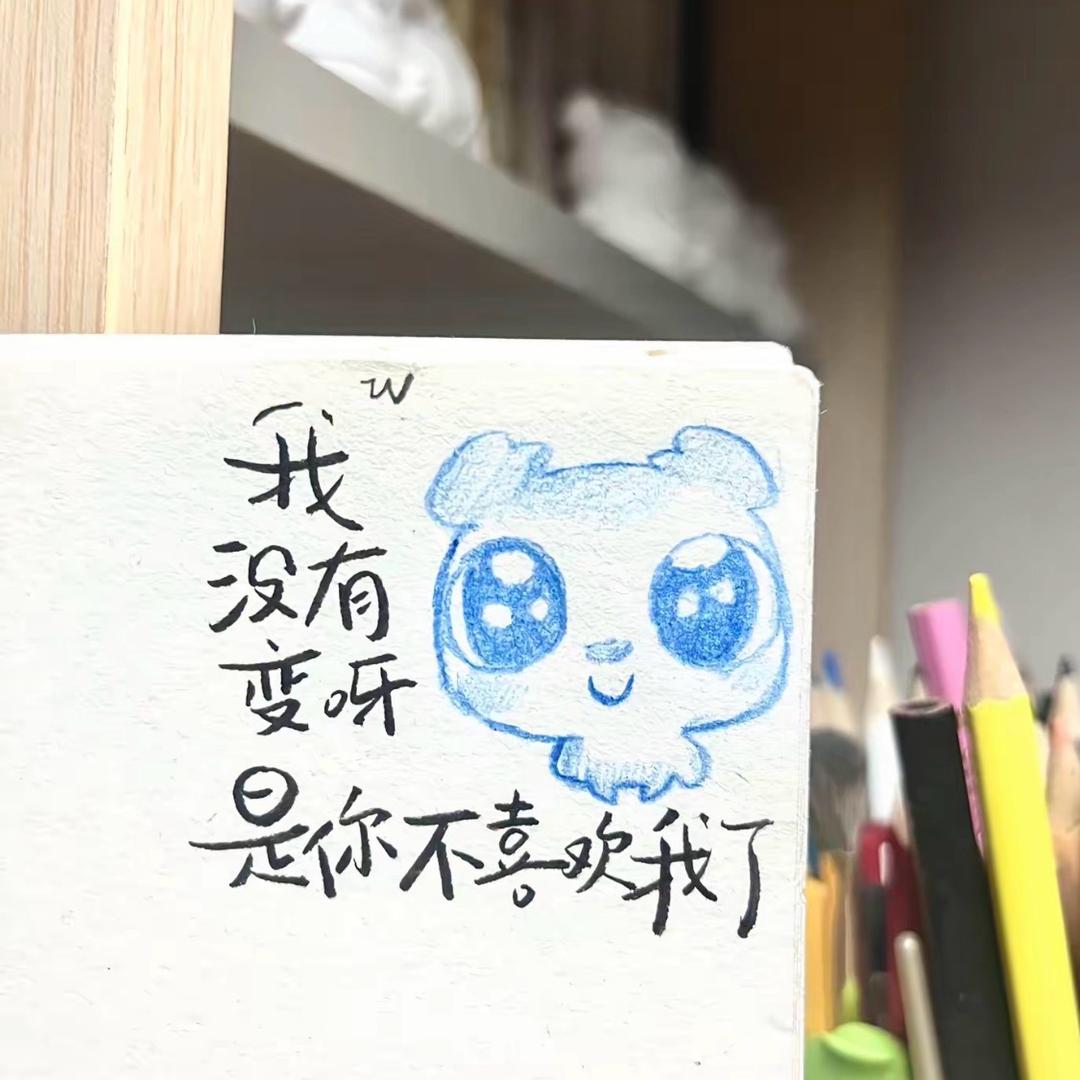 w
我
没有
变呀
是你不喜欢我了